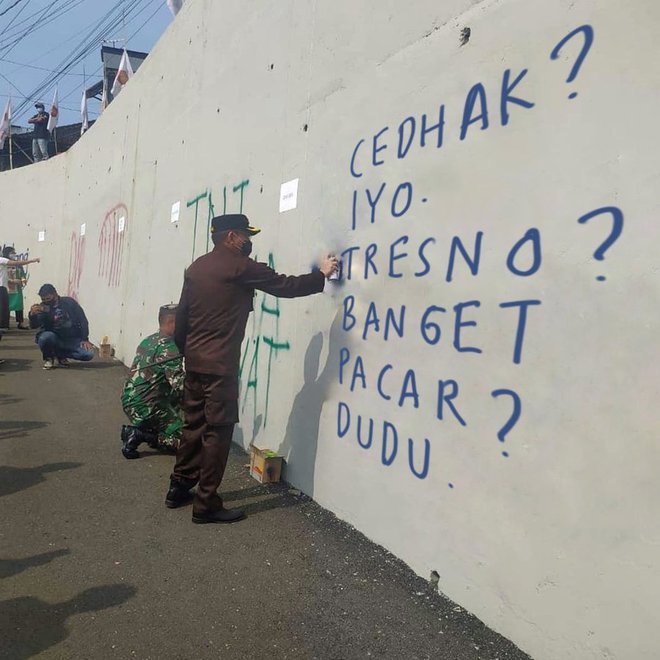 CEDHAK?
IYO.
TRESNO?
BANGET
PACAR?
DUDU.